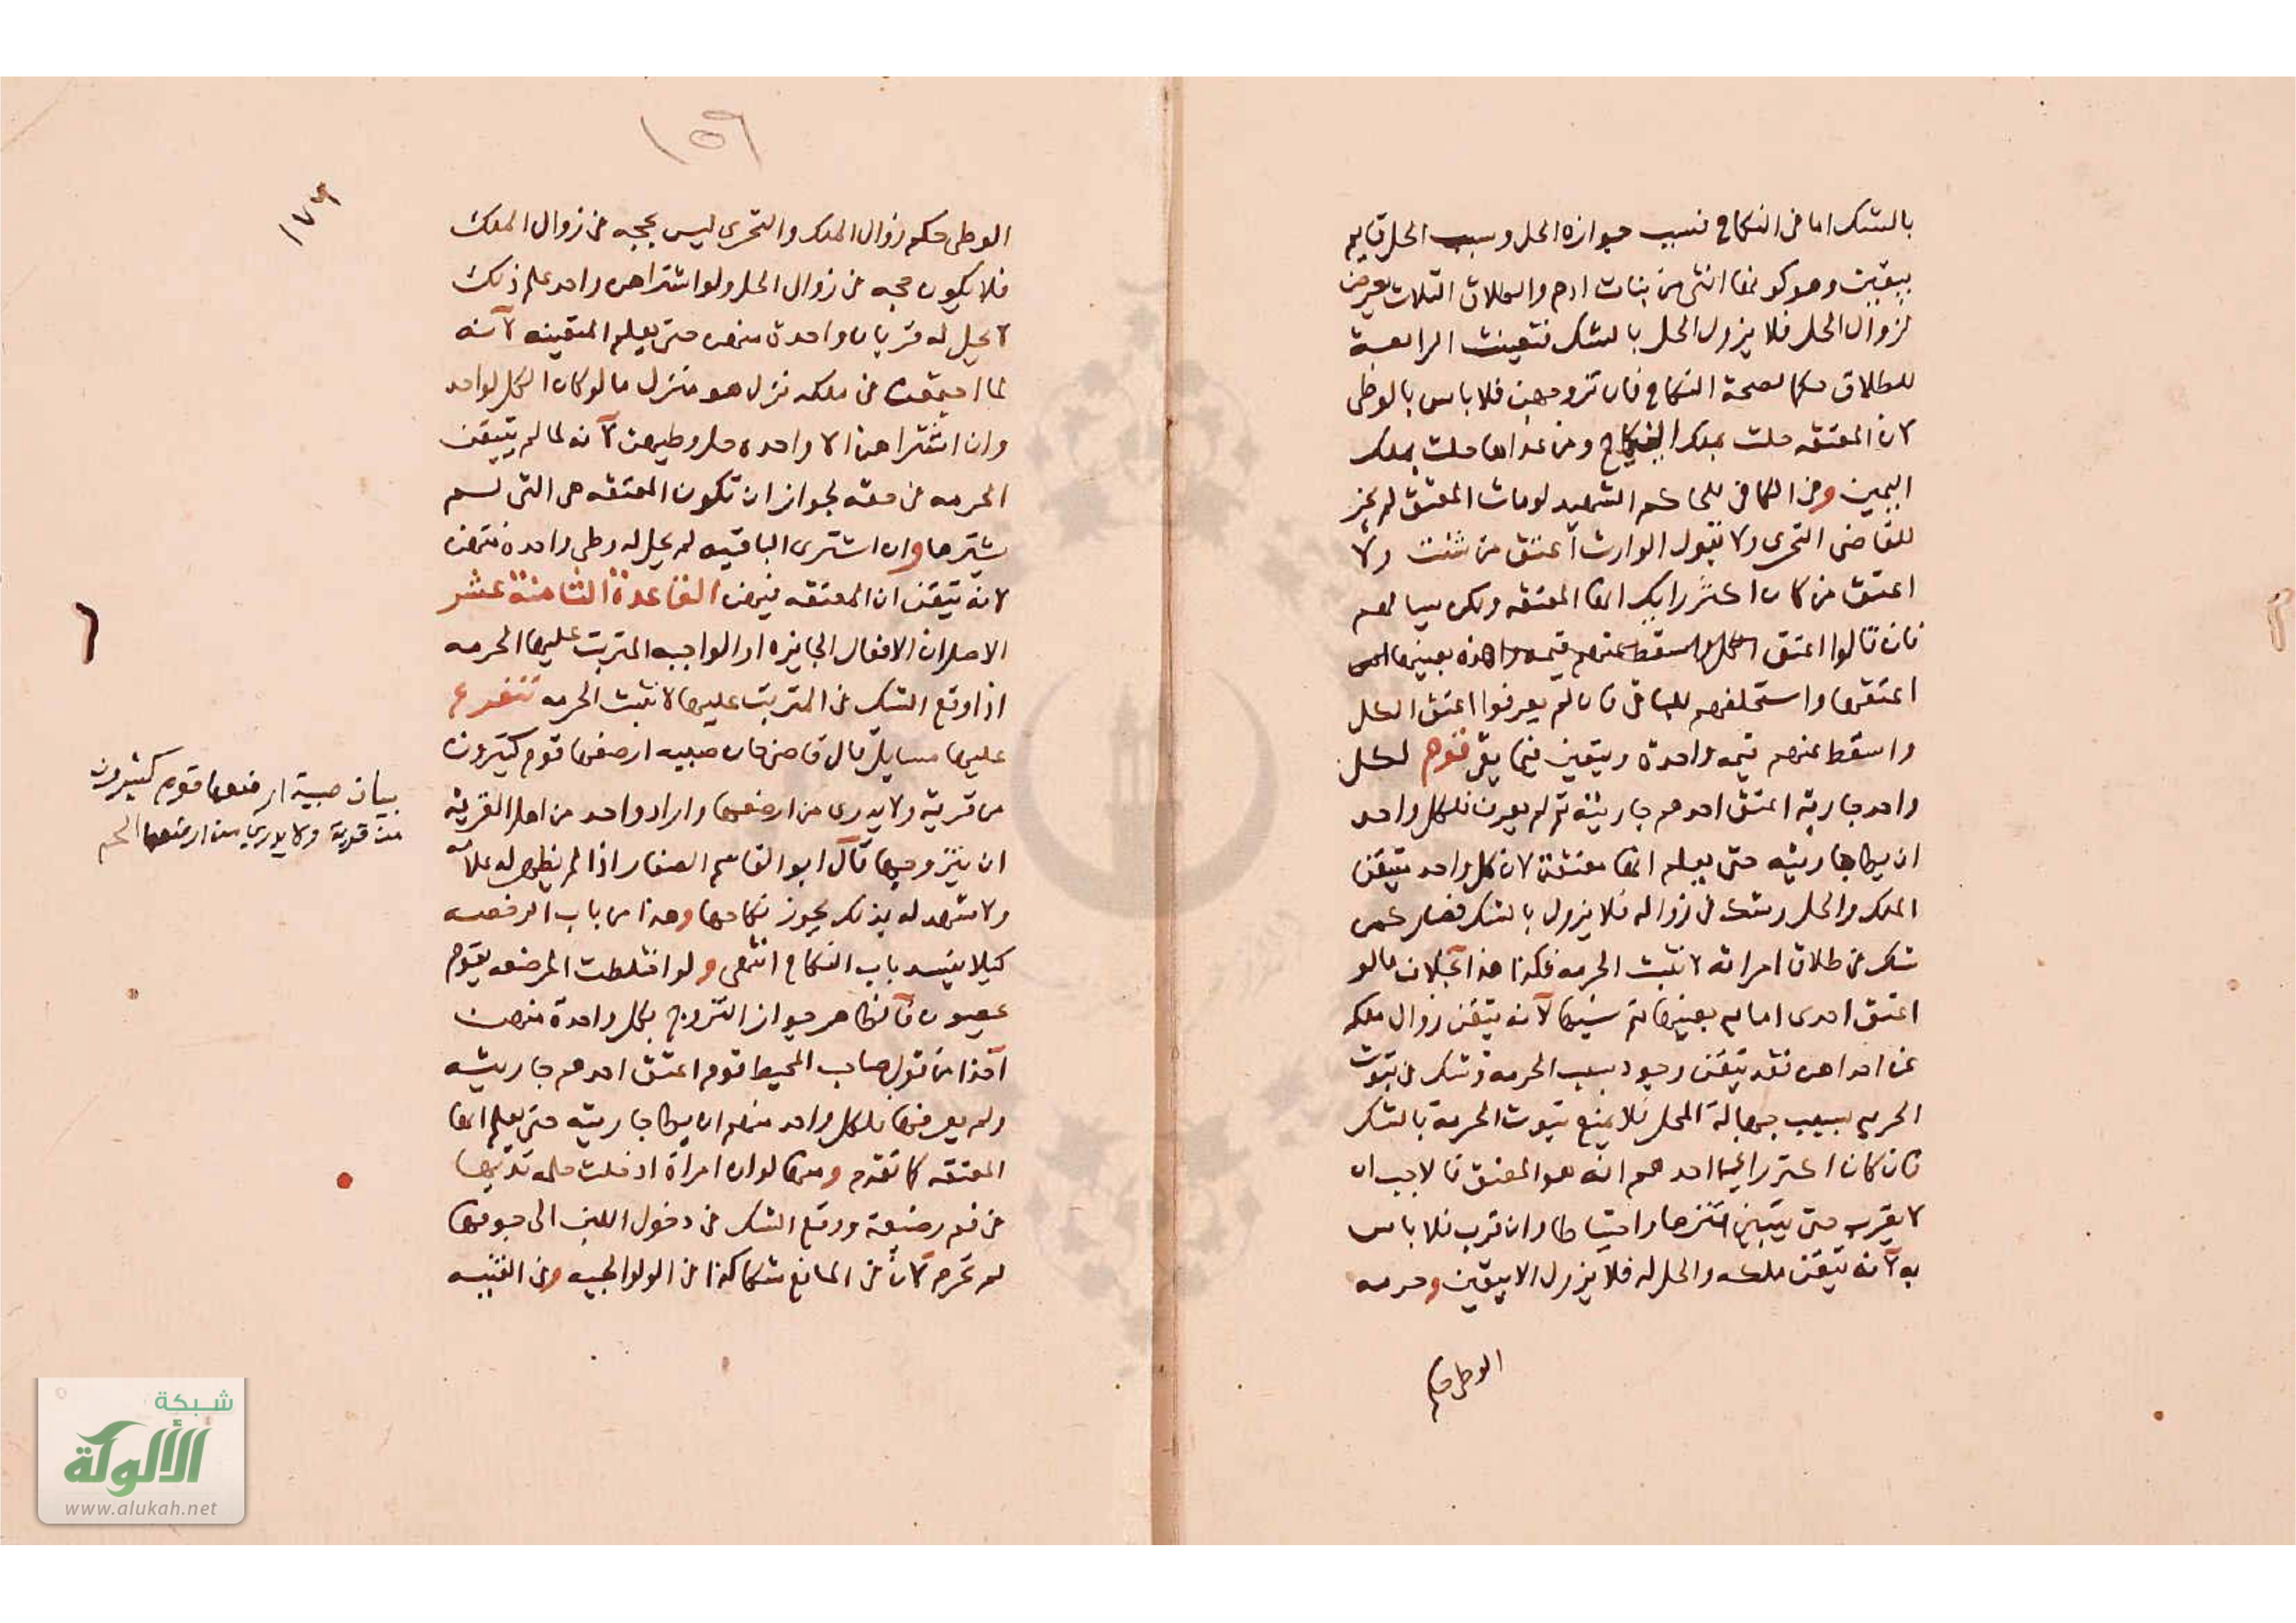 بالشك اما فى النكاح فسبب جوازه الحل وسبب الحل قايم
بيقين وهو كونها انثى من بنات ادم والطلاق الثلاث يعرض
لزوال الحل فلا يزول الحل بالشك فتعينت الرابعة
للطلاق حكما لصحة النكاح فان تزوجهن فلا باس بالوطى
لان المعتقه حلت بملك النكاح ومن عداها حلت بملك
اليمين وفى الكافى للحاكم الشهيد لو مات المعتق لم يجز
للقاضى التحرى ولا يقول الوارث اعتق من شئت ولا
اعتق من كان اكثر رايك انها المعتقه ولكن يسالهم
فان قالوا اعتق هذه بعينها
اعتقها واستحلفهم للباقى فان لم يعرفوا اعتق الكل
واسقط عنهم قيمه واحدة ويتعين فيما بقى قوم لكل
واحد جارية اعتق احدهم جاريته ثم لم يعرف فلكل واحد
ان يطا جاريته حتى يعلم انها معتقته لان كل واحد تيقن
الملك والحل وشك فى زواله فلا يزول بالشك فصار كمن
شك فى طلاق امراته لا تثبت الحرمه فكذا هذا بخلاف ما لو
اعتق احدى امايه بعينها ثم نسيها لانه تيقن زوال ملكه
عن احداهن فقد تيقن وجود سبب الحرمه وشك فى ثبوت
الحرمه بسبب جهالة المحل فلا يمنع ثبوت الحرمة بالشك
فان كان اكثر راى احدهم انه هو المعتق فالاحب ان
لا يقرب حتى يتيقن تنزها واحتياطا وان قرب فلا باس
به لانه تيقن ملكه والحل له فلا يزول الا بيقين وحرمه
الوطى حكم
١٥٦
١٧٦
الوطى حكم زوال الملك والتحرى ليس بحجه فى زوال الملك
فلا يكون حجه فى زوال الحل ولو اشتراهن واحد علم ذلك
لا يحل له قربان واحدة منهن حتى يعلم المتعينه لانه
لما اجتمعن فى ملكه نزل هو منزل ما لو كان الكل لواحد
وان اشتراهن الا واحده حل وطيهن لانه لما لم يتيقن
الحرمه فى حقه لجواز ان تكون المعتقه هى التى لم
يشترها وان اشترى الباقيه لم يحل له وطى واحدة منهن
لانه تيقن ان المعتقه فيهن القاعدة الثامنة عشر
الاصل ان الافعال الجايزه او الواجبه المترتب عليها الحرمه
اذا وقع الشك فى المترتب عليها لا تثبت الحرمه تتفرع
عليها مسايل قال قاضى خان صبيه ارضعها قوم كثيرون
من قرية ولا يدرى من ارضعها واراد واحد من اهل القرية
ان يتزوجها قال ابو القاسم الصفار اذا لم يظهر له علامه
ولا شهد له بذلك يجوز نكاحها وهذا من باب الرخصه
كيلا ينسد باب النكاح انتهى ولو اختلطت المرضعه بقوم
يحصون فالظاهر جواز التزوج بكل واحدة منهن
اخذا من قول صاحب المحيط قوم اعتق احدهم جاريته
ولم يعرفها فلكل واحد منهم ان يطا جاريته حتى يعلم انها
المعتقه كما تقدم ومنها لو ان امراة ادخلت حلمة ثديها
فى فم رضيعة ووقع الشك فى دخول اللبن الى جوفها
لم تحرم لان فى المانع شكا كذا فى الولوالجيه وفى القنيه
بيان صبية ارضعها قوم كثيرون
من قرية ولا يدرى من ارضعها الخ
شبكة
الألوكة
www.alukah.net